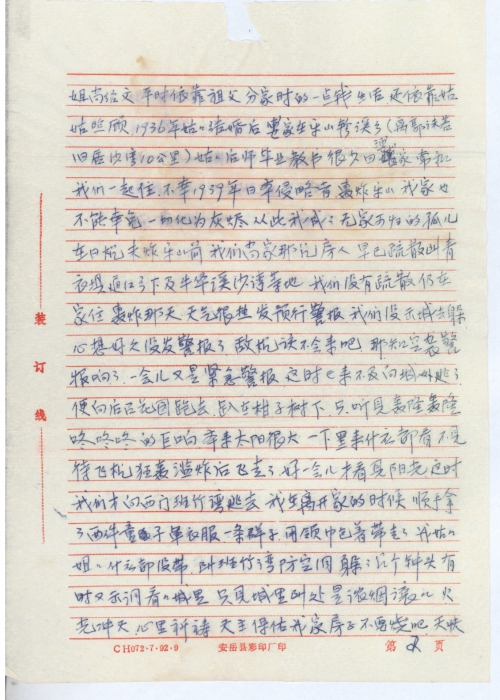 姐尚信文 平时依靠祖父分家时的一点钱生活 还依靠姑
姑照顾 1936年姑姑结婚后 家住乐山
旧居沙湾10公里) 姑姑后师毕业教书 很少回家 常和
我们一起住. 不幸1939年日军侵略者轰炸乐山 我家也
不能幸免 一切化为灰烬 从此我成了无家可归的孤儿
在日机大炸乐山前 我们尚家那几房人 早已疏散
等地 我们没有疏散 仍在
家住 轰炸那天 天气很热 发预行警报 我们没出城去躲
心想好久没发警报了 敌机该不会来吧 那知空袭警
报响了. 一会儿又是紧急警报 这时已来不及向城外跑了
便向后面花园跑去, 趴在柑子树下 只听见轰隆轰隆
咚咚咚的巨响 本来太阳很大 一下黑来什么都看不见
待飞机狂轰滥炸后飞走了 好一会儿才看见阳光 这时
我们才向西门班竹湾逃去 我在离开家的时候 顺手拿
了两件 单衣服一条裙子 用领巾包着带走了 我姑姑
姐姐什么都没带 班竹湾防空洞躲了几个钟头 有
时又出洞看看城里 只见城里到处是浓烟滚滚 火
光冲天 心里祈祷 天主保佑我家房子不要烧吧, 天快
装订线
CH072·7·92·9 安岳县彩印厂印 第 2 页